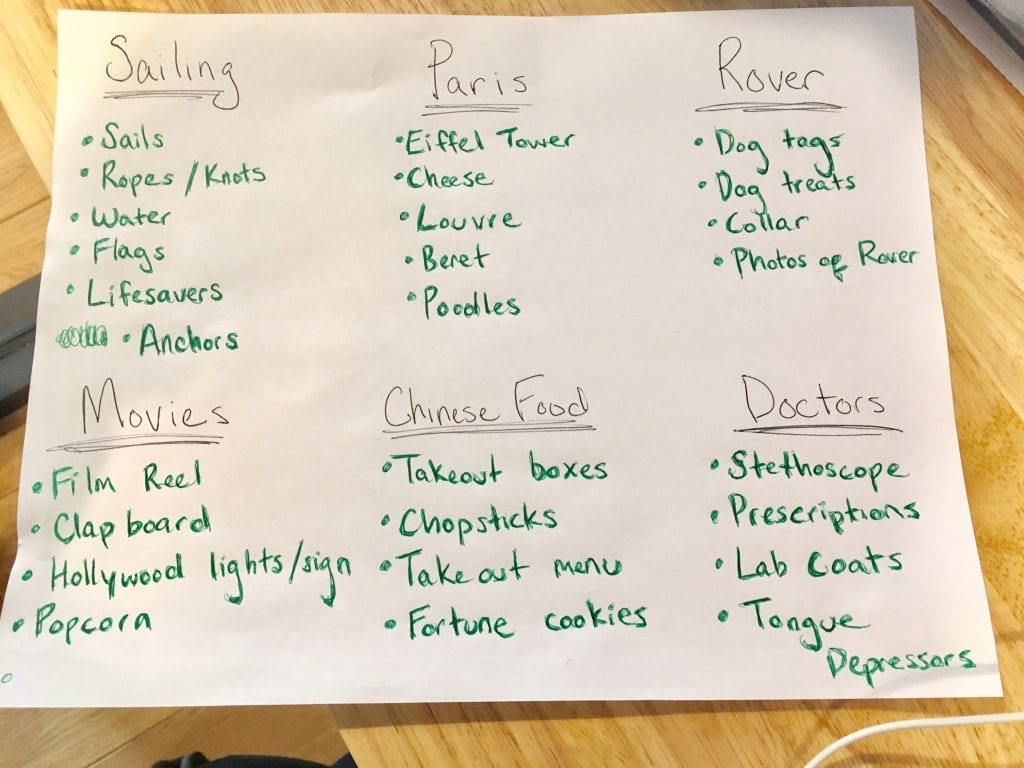 Sailing
• Sails
• Ropes / Knots
• Water
• Flags
• Lifesavers
• Anchors
Paris
• Eiffel Tower
• Cheese
• Louvre
• Beret
• Poodles
Rover
• Dog tags
• Dog treats
• Collar
• Photos of Rover
Movies
• Film Reel
• Clap board
• Hollywood lights/sign
• Popcorn
Chinese Food
• Takeout boxes
• Chopsticks
• Take out menu
• Fortune cookies
Doctors
• Stethoscope
• Prescriptions
• Lab Coats
• Tongue
Depressors